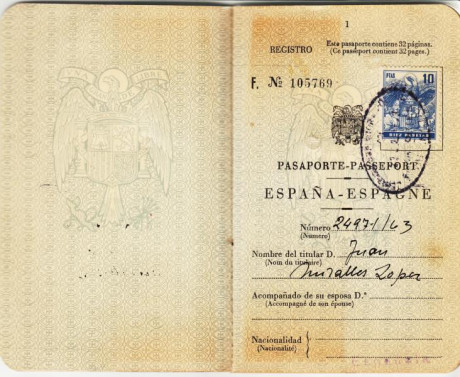 1
REGISTRO
Este pasaporte contiene 32 páginas.
(Ce passeport contient 32 pages.)
F. № 105769
PTAS 10
DIEZ PESETAS
PASAPORTE-PASSEPORT
ESPAÑA-ESPAGNE
Número 24971/63
(Numéro)
Nombre del titular D. Juan
(Nom du titulaire)
Miralles Lopez
Acompañado de su esposa D.ª
(Accompagné de son épouse)
Nacionalidad
(Nationalité)